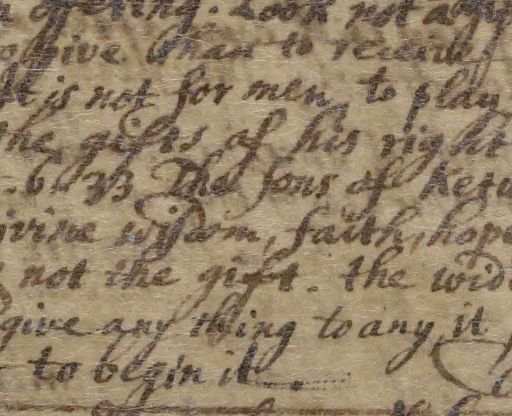 offering. Look not
give than to receive
It is not for men to play
the gifts of his right
The sons of
divine wisdom, faith, hope
not the gift. the
give any thing to any it
to begin it